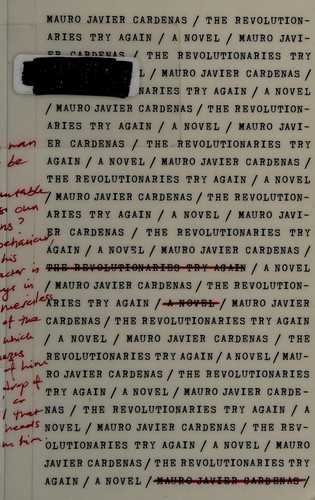 MAURO JAVIER CARDENAS / THE REVOLUTION-
ARIES TRY AGAIN / A NOVEL / MAURO JAVI-
ER CARDENAS / THE REVOLUTIONARIES TRY
L / MAURO JAVIER CARDENAS /
NARIES TRY AGAIN / A NOVEL
/ MAURO JAVIER CARDENAS / THE REVOLUTION-
ARIES TRY AGAIN / A NOVEL / MAURO JAVI-
ER CARDENAS / THE REVOLUTIONARIES TRY
AGAIN / A NOVEL / MAURO JAVIER CARDENAS /
THE REVOLUTIONARIES TRY AGAIN / A NOVEL
/ MAURO JAVIER CARDENAS / THE REVOLUTION-
ARIES TRY AGAIN / A NOVEL / MAURO JAVI-
ER CARDENAS / THE REVOLUTIONARIES TRY
AGAIN / A NOVEL / MAURO JAVIER CARDENAS /
THE REVOLUTIONARIES TRY AGAIN / A NOVEL
/ MAURO JAVIER CARDENAS / THE REVOLUTION-
ARIES TRY AGAIN / A NOVEL / MAURO JAVIER
CARDENAS / THE REVOLUTIONARIES TRY AGAIN
/ A NOVEL / MAURO JAVIER CARDENAS / THE
REVOLUTIONARIES TRY AGAIN / A NOVEL / MAU-
RO JAVIER CARDENAS / THE REVOLUTIONARIES
TRY AGAIN / A NOVEL / MAURO JAVIER CARDE-
NAS / THE REVOLUTIONARIES TRY AGAIN / A
NOVEL / MAURO JAVIER CARDENAS / THE REV-
OLUTIONARIES TRY AGAIN / A NOVEL / MAURO
JAVIER CARDENAS / THE REVOLUTIONARIES TRY
AGAIN / A NOVEL / MAURO JAVIER CARDENAS /
man
be
own
?
behaviour,
his
is
in
merciless
of the
which
of him
of
or
that
heads
him.